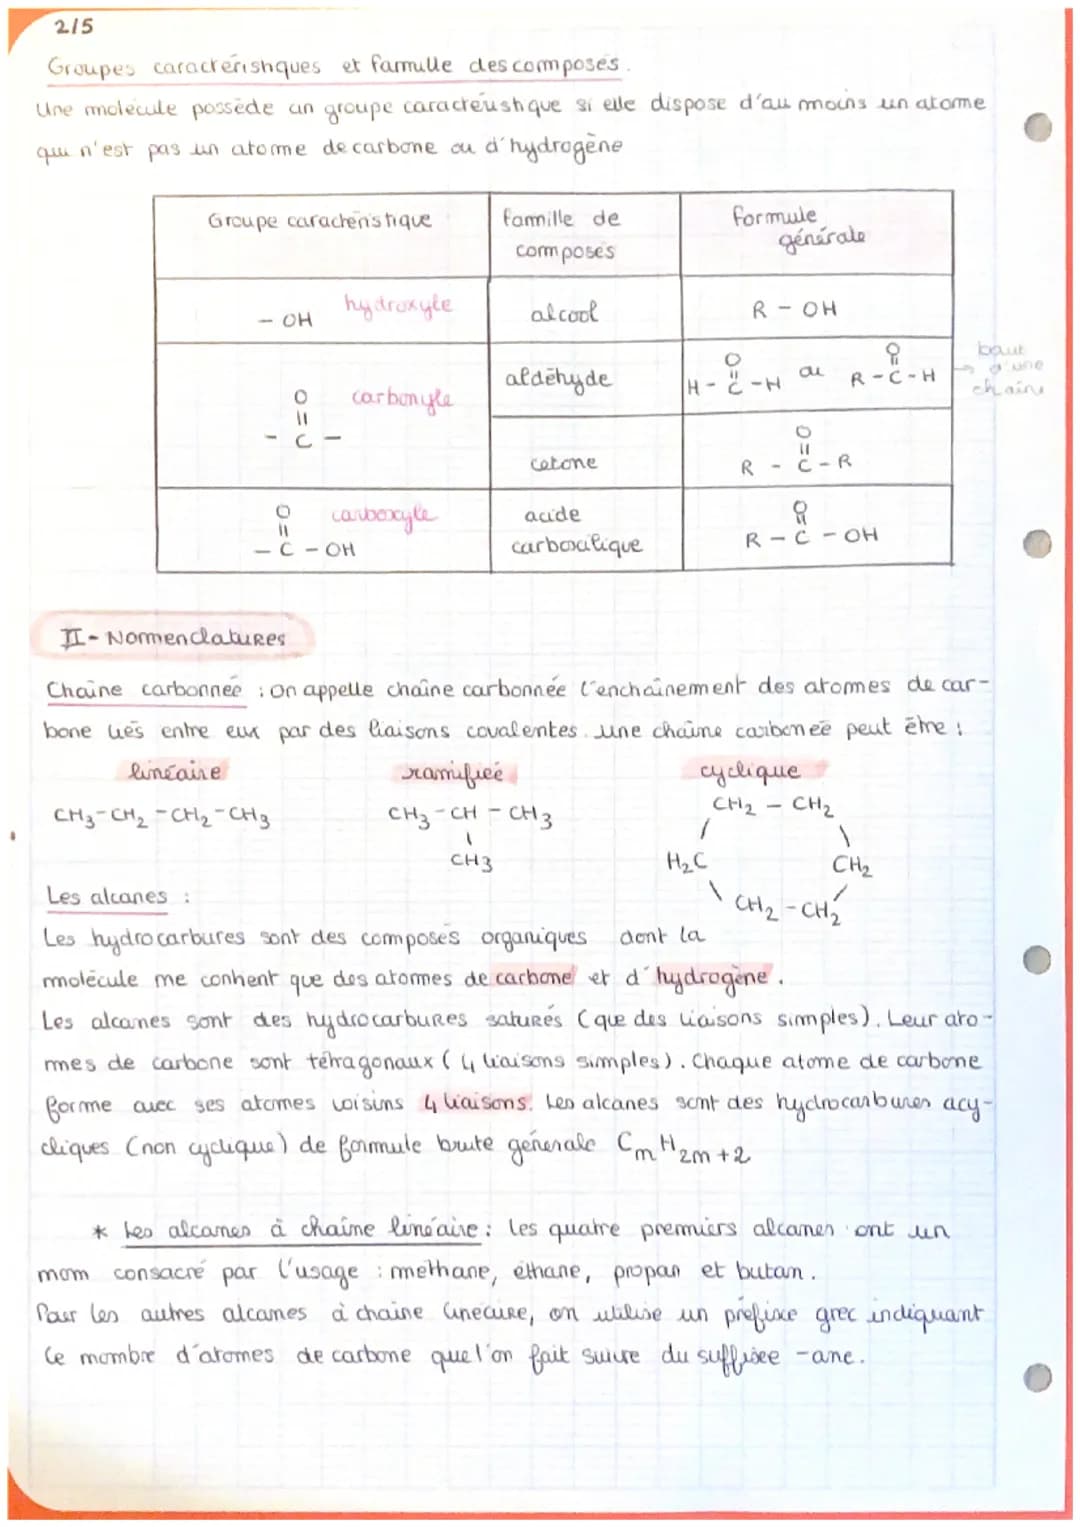 2/5
Groupes caractéristiques et famille des composés.
Une molécule possède un groupe caractéristique si elle dispose d'au moins un atome
qui n'est pas un atome de carbone ou d'hydrogène
Groupe caractéristique
famille de
composés
formule
générale
- OH hydroxyle
alcool
R - OH
O
||
- C -
carbonyle
aldéhyde
O
||
H - C - H
ou
O
||
R - C - H
→ bout
d'une
chaine
cetone
O
||
R - C - R
O
||
- C - OH
carboxyle
acide
carboxilique
O
||
R - C - OH
II - Nomenclatures
Chaîne carbonnée : on appelle chaîne carbonnée l'enchaînement des atomes de car-
bone liés entre eux par des liaisons covalentes. une chaîne carbonée peut être :
linéaire
ramifiée
cyclique
CH3-CH2-CH2-CH3
CH3-CH-CH3
CH3
CH2 - CH2
H2C
CH2
CH2-CH2
Les alcanes :
Les hydrocarbures sont des composés organiques dont la
molécule ne contient que des atomes de carbone et d'hydrogène.
Les alcanes sont des hydrocarbures saturés (que des liaisons simples). Leur ato-
mes de carbone sont tétragonaux (4 liaisons simples). Chaque atome de carbone
forme avec ses atomes voisins 4 liaisons. Les alcanes sont des hydrocarbures acy-
cliques (non cyclique) de formule brute générale CnH2n+2
* Les alcanes à chaîne linéaire : les quatre premiers alcanes ont un
nom consacré par l'usage : méthane, éthane, propan et butan.
Pour les autres alcanes à chaîne linéaire, on utilise un préfixe grec indiquant
le nombre d'atomes de carbone que l'on fait suivre du suffixee -ane.